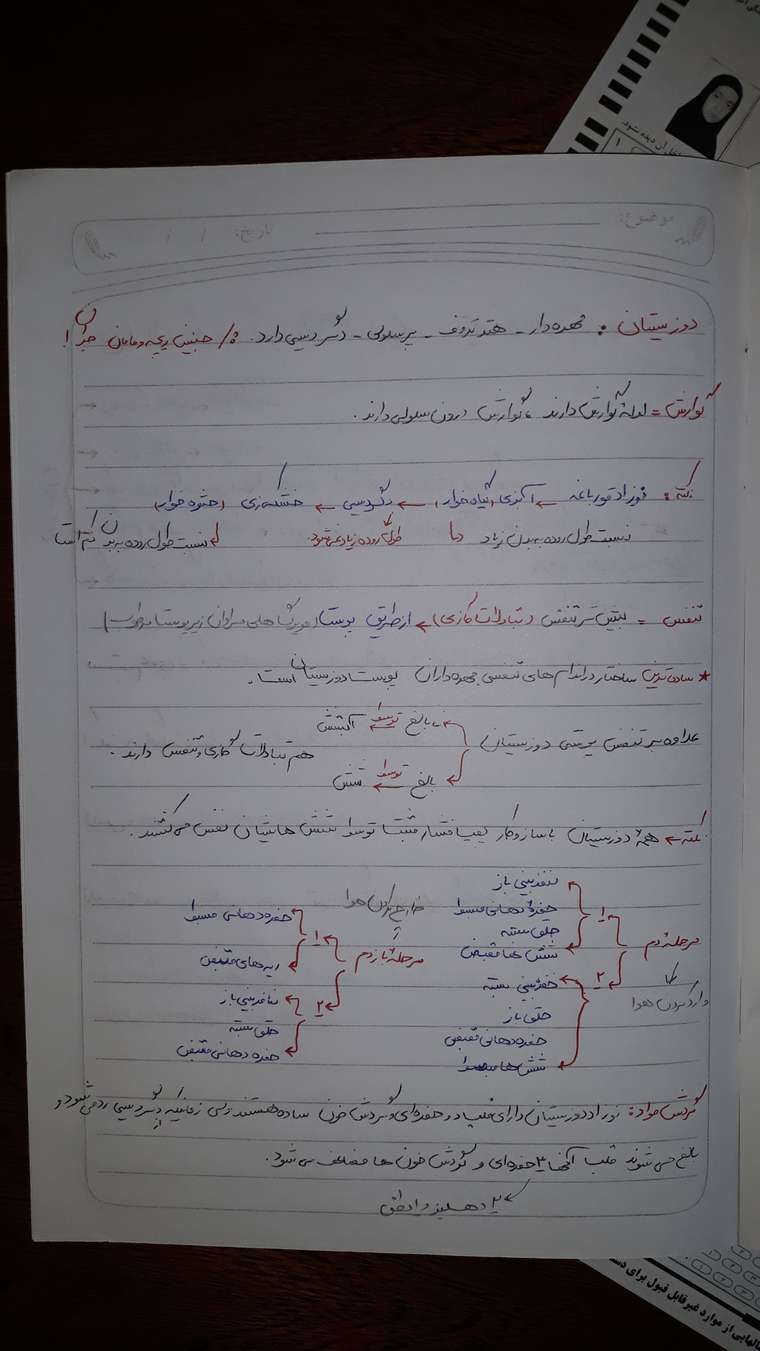 موضوع:
تاریخ: / /
دوزیستان: مهره‌دار - هفته - پرسلولی - دگردیسی دارد. جنین و مامان
گوارش = لوله گوارش دارند، گوارش درون سلولی دارند.
نکته: نوزاد قورباغه ← آبزی (گیاه خوار) ← دگردیسی ← خشکی‌زی (حشره خوار)
نسبت طول روده به بدن زیاد طول روده زیاد نمی‌شود. نسبت طول روده به بدن کم است
تنفس = بیشتر تنفس (تبادلات گازی) ← از طریق پوست (مویرگ‌های فراوان زیر پوست)
* ساده‌ترین ساختار در اندام‌های تنفسی مهره‌داران پوست دوزیستان است.
علاوه بر تنفس پوستی دوزیستان
نابالغ توسط آبشش
بالغ توسط شش
هم تبادلات گازی و تنفس دارند.
نکته ← همه دوزیستان با سازوکار پمپ فشار مثبت توسط شش هایشان تنفس می‌کنند.
مرحله دم
وارد کردن هوا
۱
بینی باز
حفره دهانی منبسط
حلق بسته
شش ها منقبض
۲
بینی بسته
حلق باز
حفره دهانی منقبض
شش ها منبسط
خارج کردن هوا
مرحله بازدم
۱
حفره دهانی منبسط
ریه های منقبض
۲
بینی باز
حلق بسته
حفره دهانی منقبض
گردش مواد: نوزاد دوزیستان دارای قلب دو حفره‌ای و گردش خون ساده هستند ولی زمانیکه دگردیسی می‌شود و
بالغ می شوند قلب آنها ۳ حفره‌ای و گردش خون ها مضاعف می شود.
۲ دهلیز و ۱ بطن